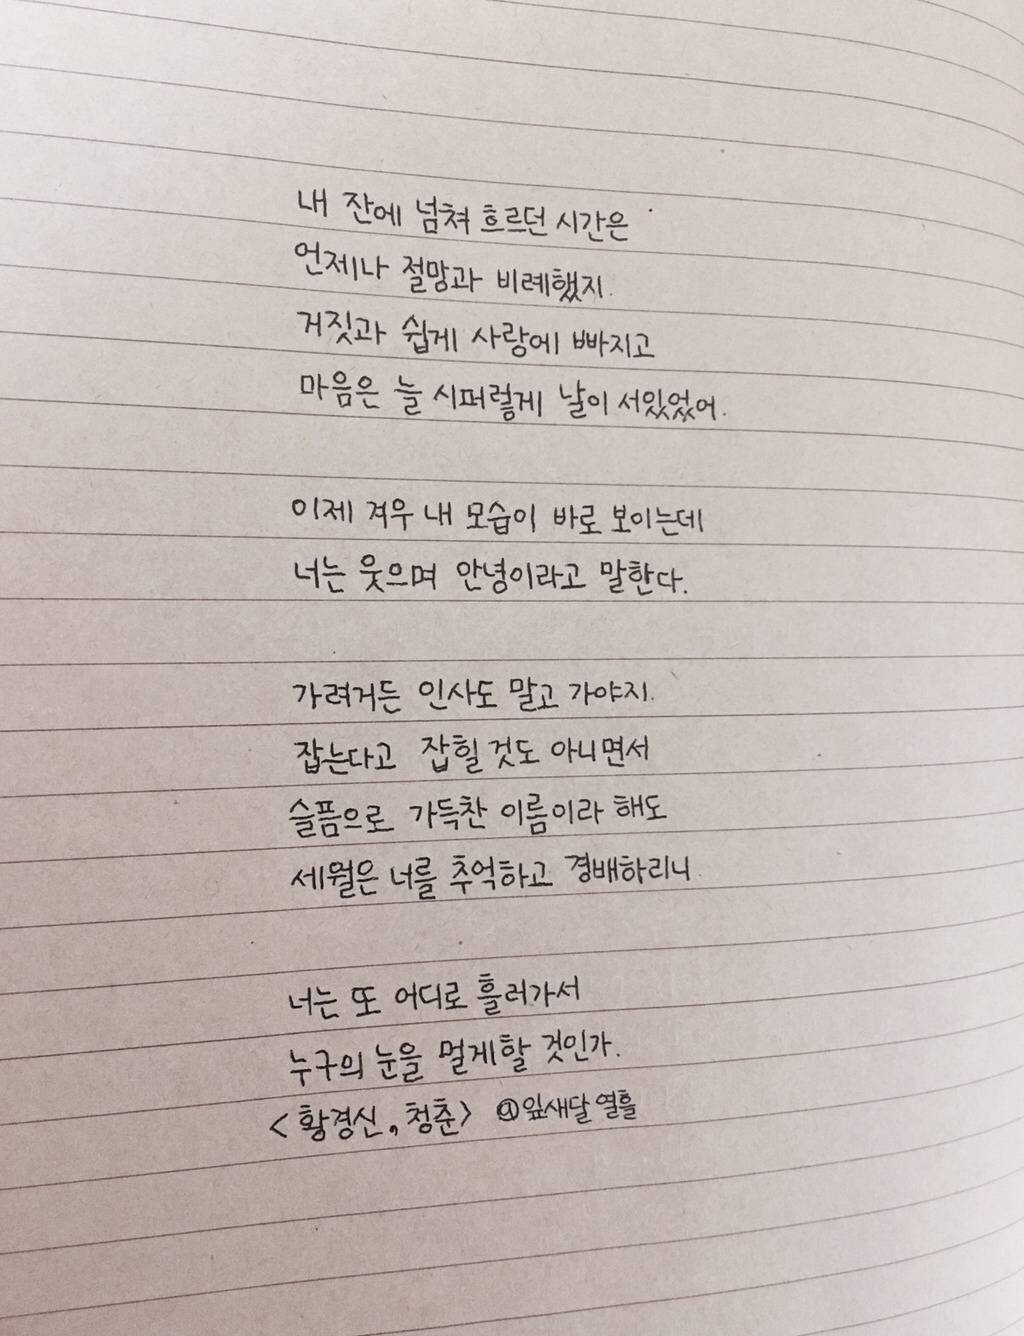 내 잔에 넘쳐 흐르던 시간은
언제나 절망과 비례했지.
거짓과 쉽게 사랑에 빠지고
마음은 늘 시퍼렇게 날이 서있었어.
이제 겨우 내 모습이 바로 보이는데
너는 웃으며 안녕이라고 말한다.
가려거든 인사도 말고 가야지.
잡는다고 잡힐 것도 아니면서
슬픔으로 가득찬 이름이라 해도
세월은 너를 추억하고 경배하리니
너는 또 어디로 흘러가서
누구의 눈을 멀게할 것인가.
<황경신, 청춘> @잎새달 열흘